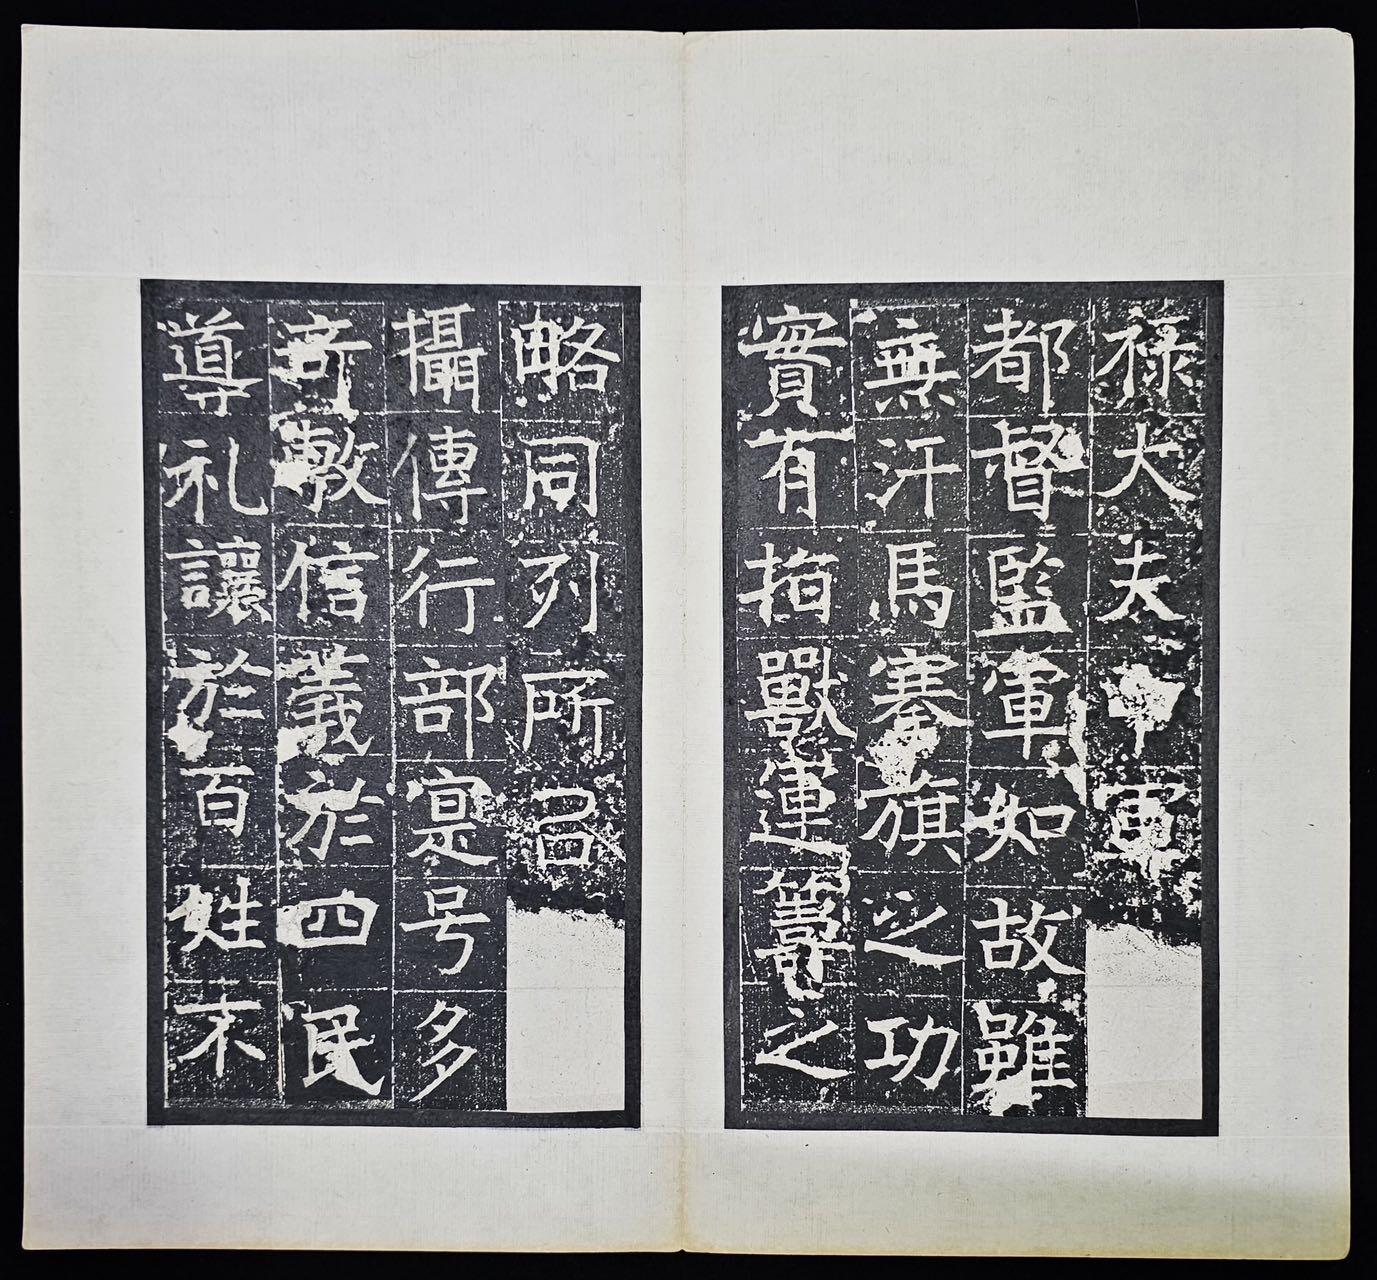 祿大夫中軍
都督監軍如故雖
無汗馬搴旗之功
實有指獸運籌之
略同列所召
攝傳行部寔号多
奇敷信義於四民
導礼讓於百姓末